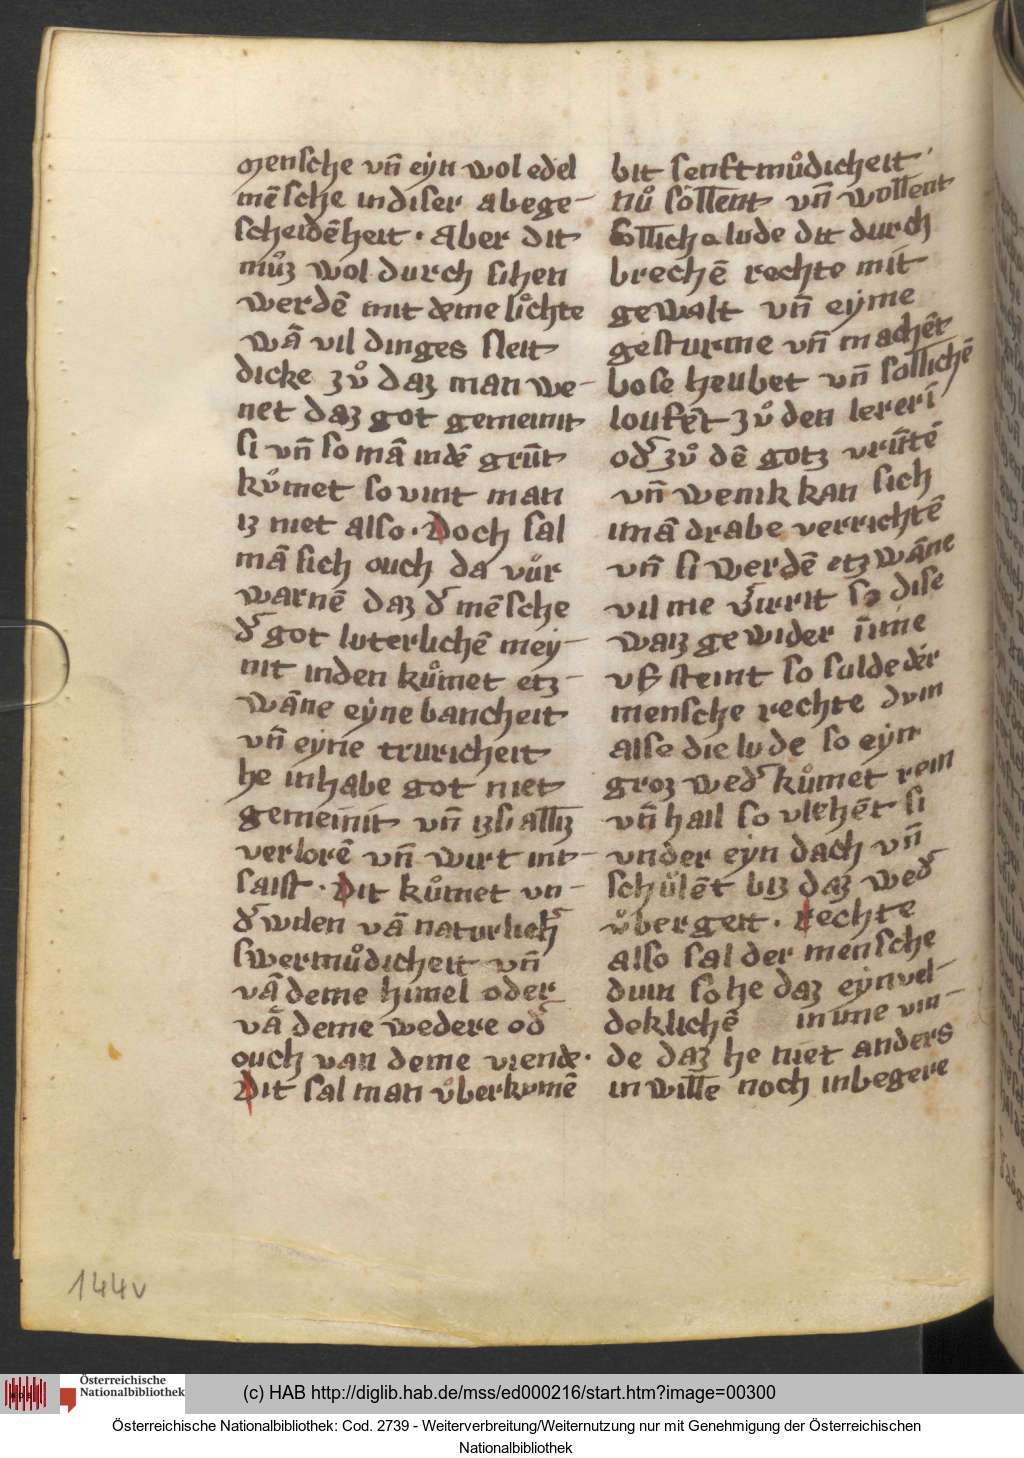 mensche vn̄ eẏn wol edel
mēsche in diser abege-
scheidēheit · Aber dit
mu̇ͦz wol durch sihen
werdē mit deme lıͦchte
wā vil dinges sleit
dicke zvͦ daz man we-
net daz got gemeinit
si vn̄ so mā indē grūt
kvͦmet so vint man
iz niet also · Doch sal
mā sich ouch da vuͦr
warnē daz d' mēsche
d' got luterlichē mey-
nit inden kuͦmet etz-
wāne eẏne bancheit
vn̄ eẏne truricheit
he inhabe got niet
gemeinit vn̄ iz si alliz
verlorē vn̄ wirt int-
saist · Dit kuͦmet vn-
d'wilen vā naturlich'
swermuͦdicheit vn̄
vā deme himel oder
vā deme wedere od'
ouch van deme viende ·
Dit sal man vͦberkumē
bit senftmuͦdicheit
nuͦ sollent vn̄ wollent
sllich a lude dit durch
brechē rechte mit
gewalt vn̄ eẏme
gesturme vn̄ machēt
bose heubet vn̄ sollichē
loufēt zvͦ den lererī
od' zvͦ dē gotz vrūtē
vn̄ wenik kan sich
imā drabe verrichtē
vn̄ si werdē etzwāne
vil me v'irrit so dise
waiz gewider īīme
vf steint so sulde der
mensche rechte dvin
alse die lude so eẏn
groz wed' kuͦmet rein
vn̄ hail so vlehēt si
vnder eẏn dach vn̄
schulēt biz daz wed'
vͦbergeit · Rechte
also sal der mensche
duin so he daz eẏnvel-
deklichē in ime vin-
de daz he niet anders
in wille noch inbegere
144v
(c) HAB http://diglib.hab.de/mss/ed000216/start.htm?image=00300
Österreichische
Nationalbibliothek
Österreichische Nationalbibliothek: Cod. 2739 - Weiterverbreitung/Weiternutzung nur mit Genehmigung der Österreichischen
Nationalbibliothek